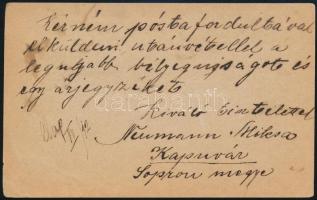 Kérném póstafordultával
elküldeni utánvétellel a
legujabb bélyegujságot és
egy árjegyzéket
Kiváló tisztelettel
Neumann Miksa
Kapuvár
Sopron megye